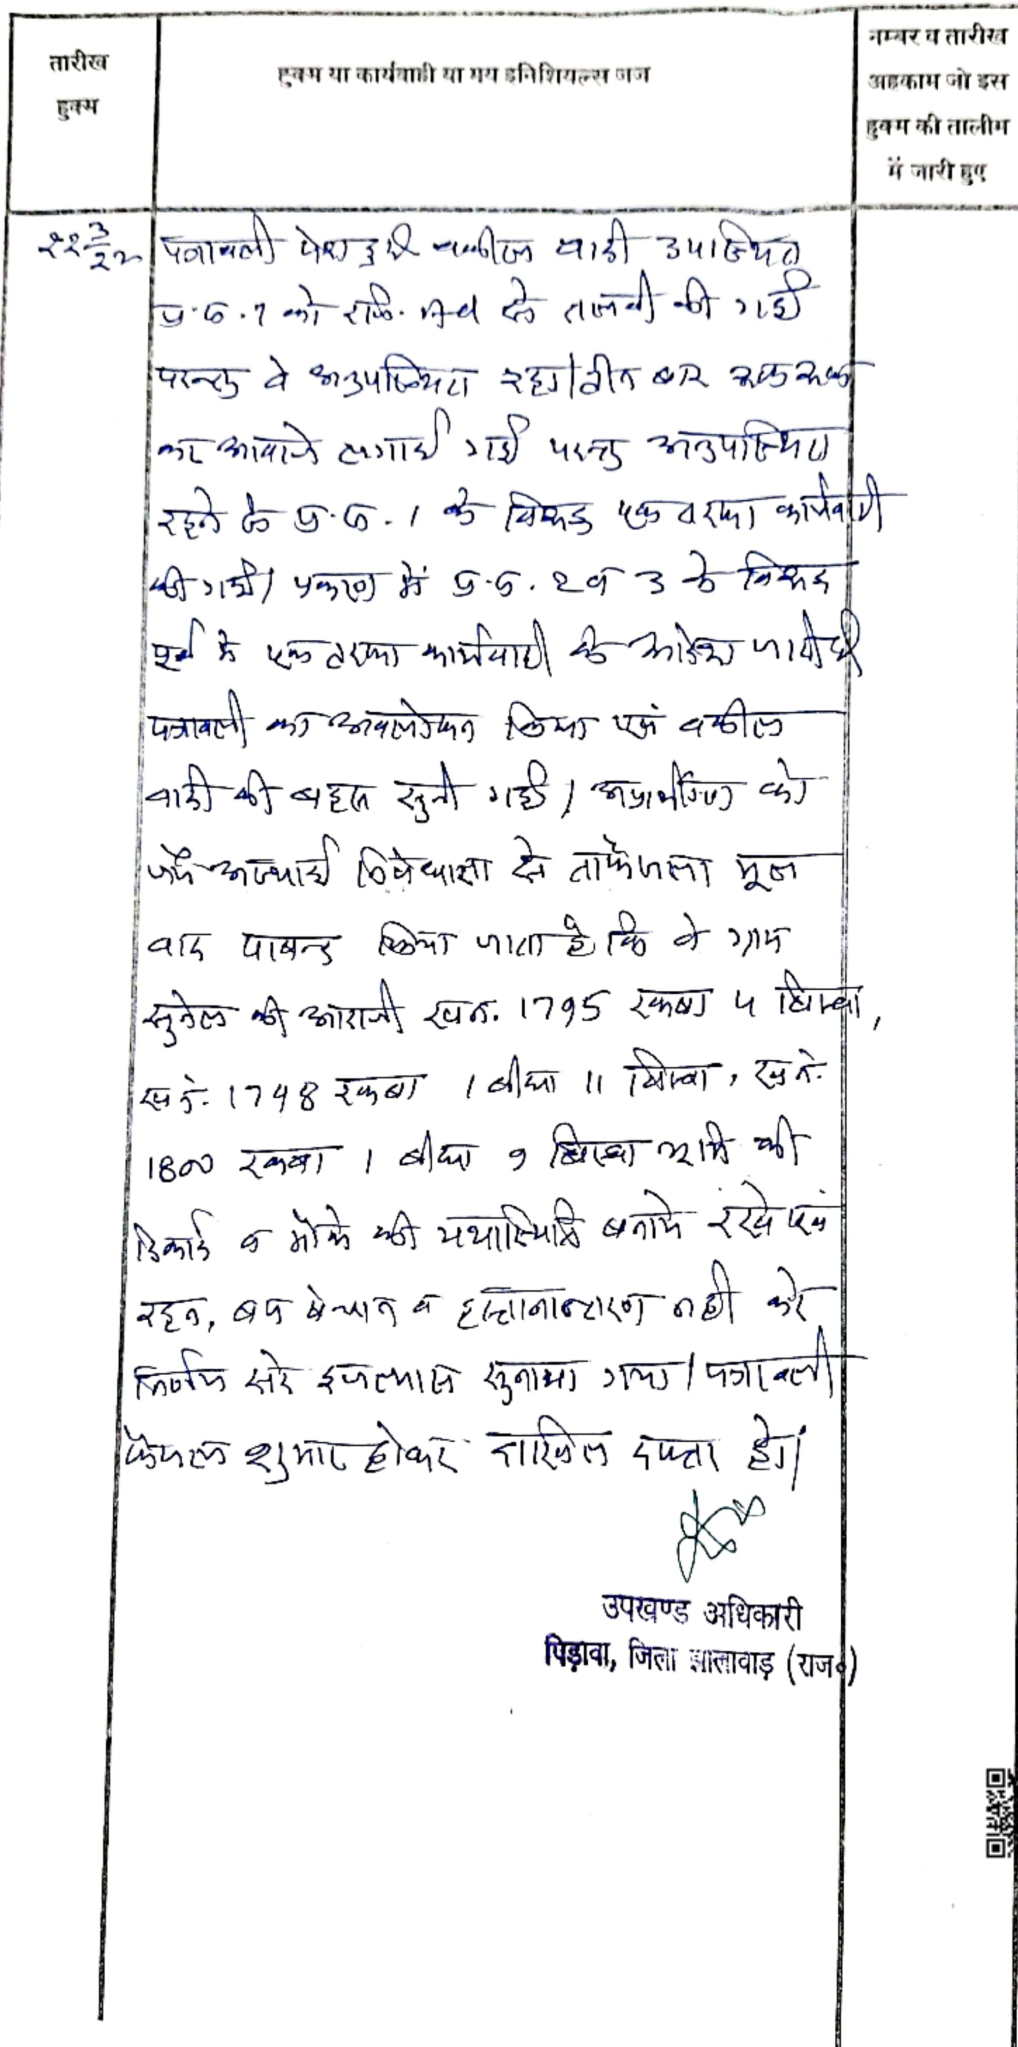 तारीख
हुक्म
हुक्म या कार्यवाही या मय इनिशियल्स जज
नम्बर व तारीख
अहकाम जो इस
हुक्म की तालीम
में जारी हुए
22 3/22 पत्रावली पेश हुई वकील वादी उपस्थित
प्र.स. 1 को रजि. से तलबी की गई
परन्तु वे अनुपस्थित रहा। तीन बार रूक रूक
कर आवाजे लगाई गई परन्तु अनुपस्थित
रहने से प्र.स. 1 के विरूद्ध एक तरफा कार्यवाही
की गई। प्रकरण में प्र.स. 2 व 3 के विरूद्ध
पूर्व में एक तरफा कार्यवाही के आदेश जारी है
पत्रावली का अवलोकन किया एवं वकील
वादी की बहस सुनी गई। अप्रार्थीगण को
जर्ये अस्थाई निषेधाज्ञा से ताफैसला मूल
वाद पाबन्द किया जाता है कि वे ग्राम
सुनेल की आराजी ख.न. 1795 रकबा 4 बिस्वा,
ख.न. 1798 रकबा 1 बीघा 11 बिस्वा, ख.न.
1800 रकबा 1 बीघा 9 बिस्वा भूमि की
रिकार्ड व मौके की यथास्थिति बनाये रखे एवं
रहन, बय बेचान व हस्तानान्तरण नही करे
निर्णय सरे इजलास सुनाया गया। पत्रावली
फैसल शुमार होकर दाखिल दफ्तर हो।
उपखण्ड अधिकारी
पिड़ावा, जिला झालावाड़ (राज०)